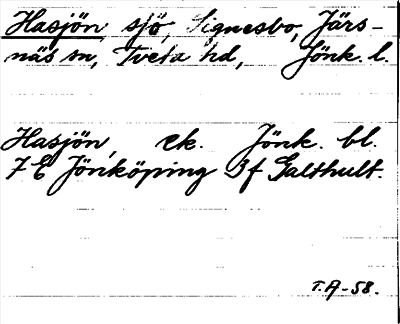 Hasjön, sjö, Signesbo, Järs-
näs sn, Tveta hd, Jönk. l.
Hasjön, ek. Jönk. bl.
7 E Jönköping 3f Galthult.
T.A-58.